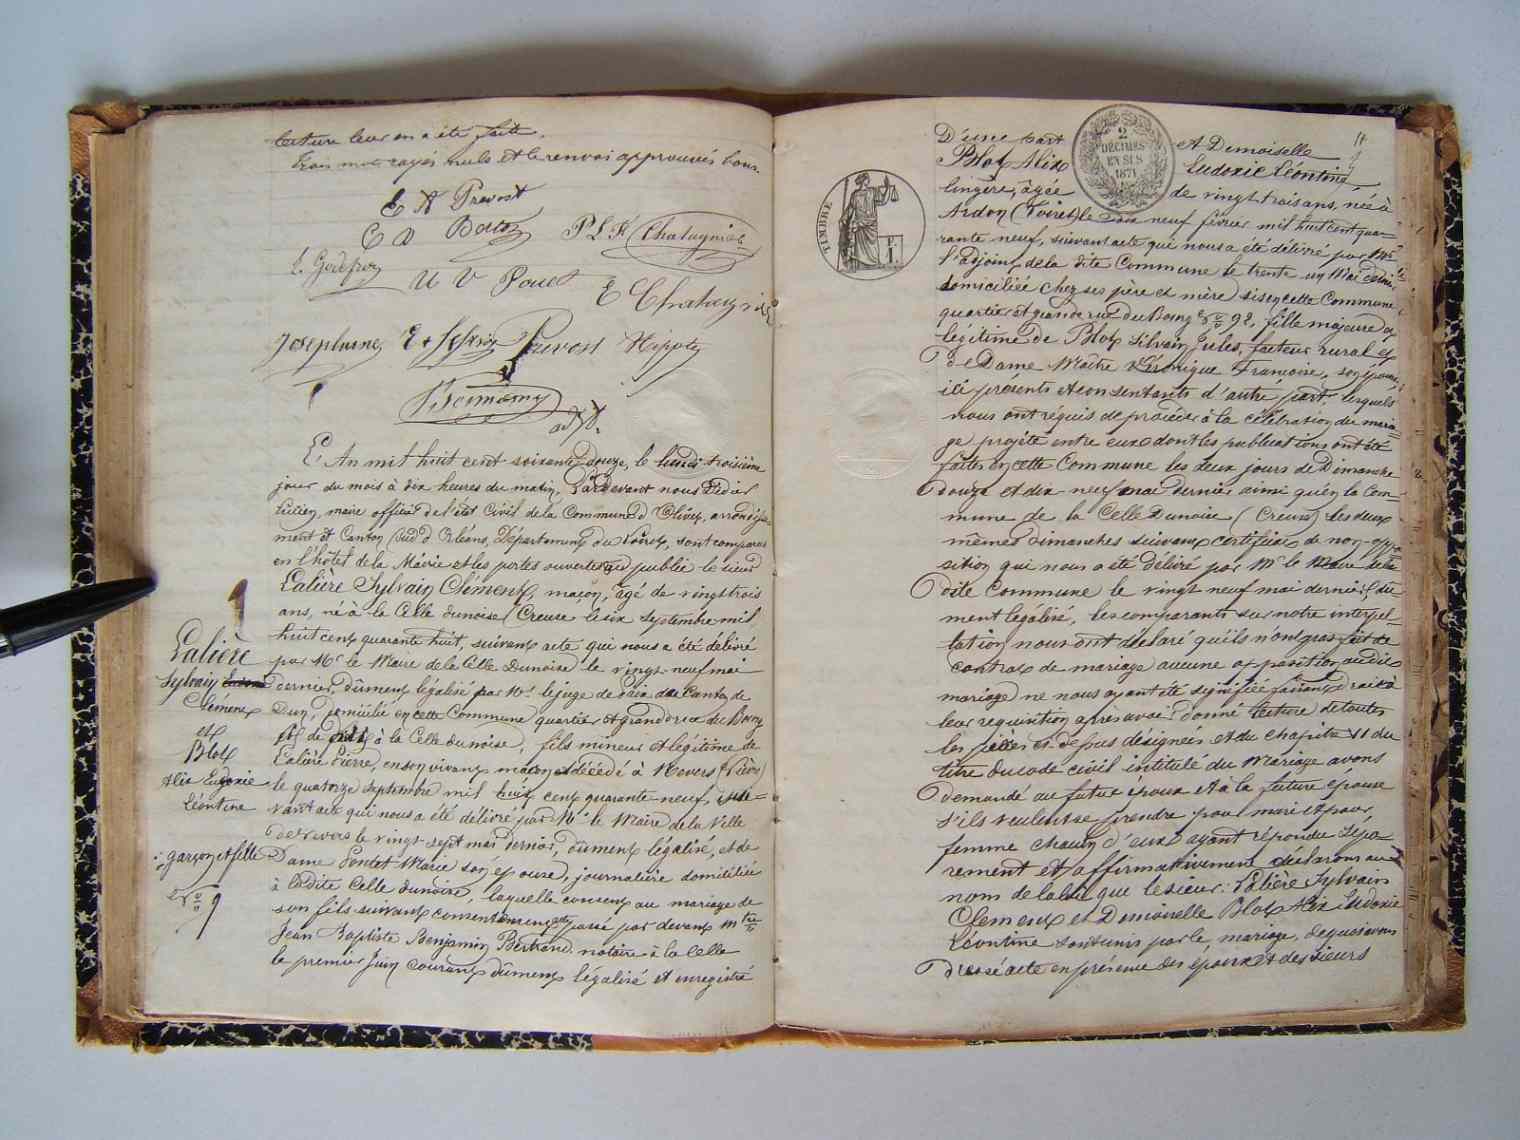 lecture leur en a été faite.
Trois mots rayés nuls et le renvoi approuvés bons.
E A Prevost
E D P L F Chatagnier
E. Godefroy U V E
Josephine E Prevost Hippoly
adjt.
L'An mil huit cent soixante douze, le lundi troisième
jour du mois à dix heures du matin, Pardevant nous
Lucien, maire officier de l'état civil de la Commune d'Olivet, arrondisse-
ment et Canton Sud d'Orléans, Département du Loiret, sont comparus
en l'hôtel de la Mairie et les portes ouvertes au public le sieur
Lalière Sylvain Clément, maçon, âgé de vingt trois
ans, né à la Celle dunoise (Creuse le six septembre mil
huit cent quarante huit, suivant acte qui nous a été délivré
par Mr le Maire de la Celle Dunoise le vingt-neuf mai
dernier, dûment légalisé par Mr le juge de paix du Canton de
Dun, domicilié en cette Commune quartier et grande rue du Bourg
de à la Celle dunoise, fils mineur et légitime de
Lalière Pierre, en son vivant maçon décédé à Nevers (Nièvre)
le quatorze septembre mil huit cent quarante neuf, sui-
vant acte qui nous a été délivré par Mr le Maire de la Ville
de Nevers le vingt-sept mai dernier, dûment légalisé, et de
Dame Marie son épouse, journalière domiciliée
à ladite Celle dunoise, laquelle consent au mariage de
son fils suivant consentement passé par devant Mtre
Jean Baptiste Benjamin Bertrand notaire à la Celle
le premier Juin courant dûment légalisé et enregistré
Lalière
Sylvain
Clément
et
Blot
Alix Eudoxie
Léontine
garçon et fille
No 9
D'une part et Demoiselle
Blot Alix Eudoxie Léontine
lingère, âgée de vingt trois ans, née à
Ardon (Loiret) le neuf février mil huit cent qua-
rante neuf, suivant acte qui nous a été délivré par Mr
l'adjoint de la dite Commune le trente un Mai
domiciliée chez ses père et mère sis en cette Commune
quartier et grande rue du Bourg No 92, fille majeure et
légitime de Blot Silvain Jules, facteur rural et
de Dame Maître Véronique Francoise, son épouse
ici présents et consentants d'autre part, lesquels
nous ont réquis de procéder à la célébration du maria-
ge projeté entre eux dont les publications ont été
faites en cette Commune les deux jours de Dimanche
douze et dix neuf mai dernier ainsi qu'en la Com-
mune de la Celle Dunoise (Creuse) les deux
mêmes dimanches suivant certificat de non-oppo
sition qui nous a été délivré par Mr le Maire de la
dite Commune le vingt neuf mai dernier, dû
ment légalisé, les comparants sur notre interpel-
lation nous ont déclaré qu'ils n'ont pas fait de
contrat de mariage aucune opposition au dit
mariage ne nous ayant été signifiée faisant droit à
leur requisition après avoir donné lecture de toutes
les pièces ci-dessus désignées et du chapitre VI du
titre du code civil intitulé du Mariage avons
demandé au futur époux et à la future épouse
s'ils veulent se prendre pour mari et pour
femme chacun d'eux ayant répondu sépa-
rement et affirmativement déclarons au
nom de la loi que le sieur: Lalière Sylvain
Clement et Demoiselle Blot Alix Eudoxie
Léontine sont unis par le mariage, de quoi avons
dressé acte en présence des époux et des sieurs
TIMBRE
2
DÉCIMES
EN SUS
1871